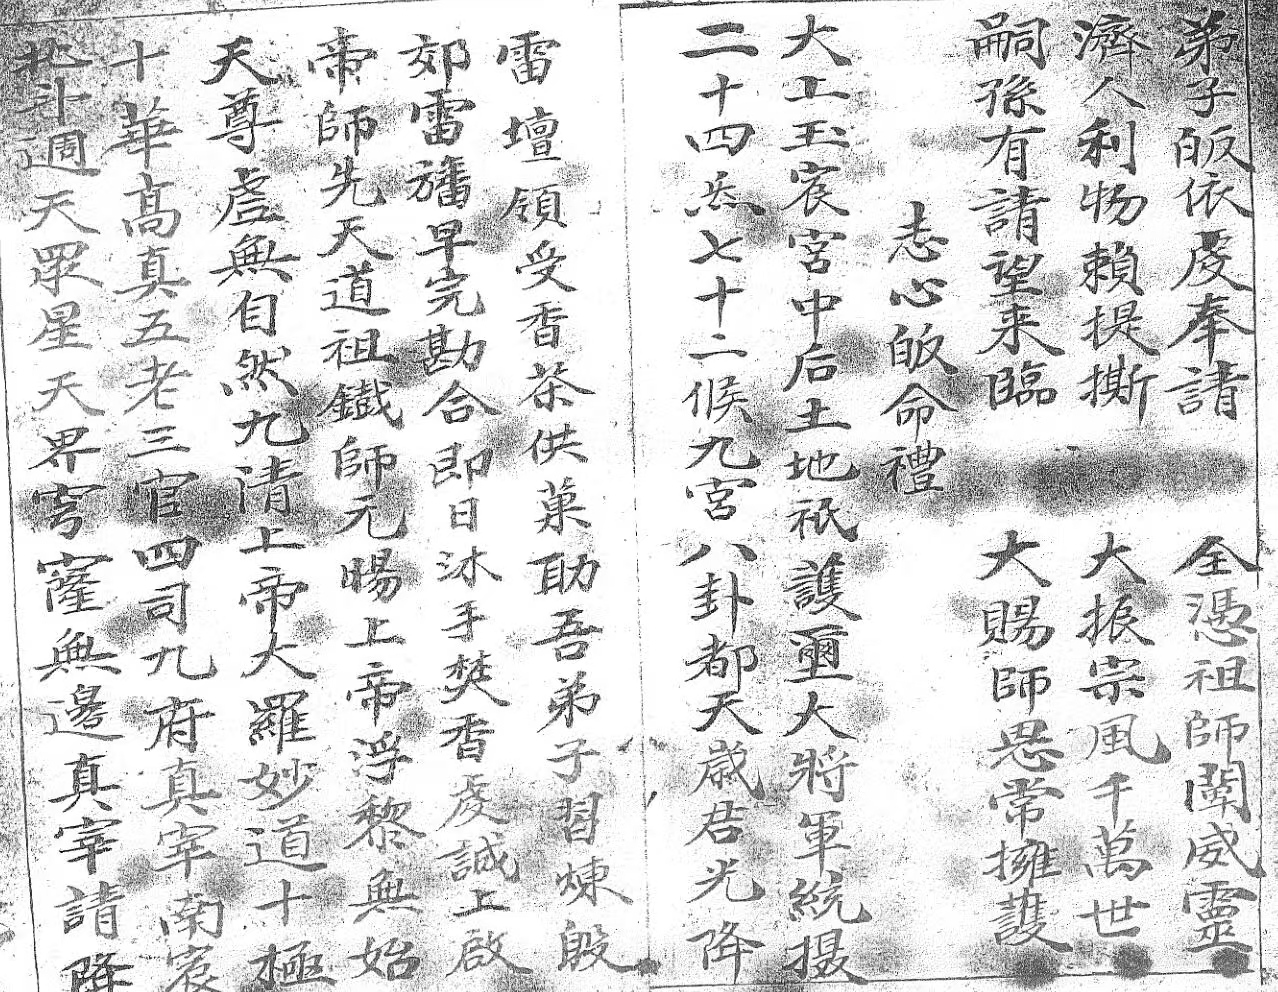 弟子皈依虔奉請　全憑祖師闡威靈
濟人利物賴提撕　大振宗風千萬世
嗣孫有請望來臨　大賜師恩常擁護
志心皈命禮
大上玉宸宮中后土地祇護璽大將軍統摄
二十四炁七十二候九宮八卦都天歳君光降
雷壇領受香茶供菓助吾弟子習煉殷
郊雷旛早完勘合即日沐手焚香虔誠上啟
帝師先天道祖鐵師元暘上帝浮黎無始
天尊虛無自然九清上帝大羅妙道十極
十華高真五老三官四司九府真宰南宸
北斗週天眾星天界穹窿無邊真宰請降